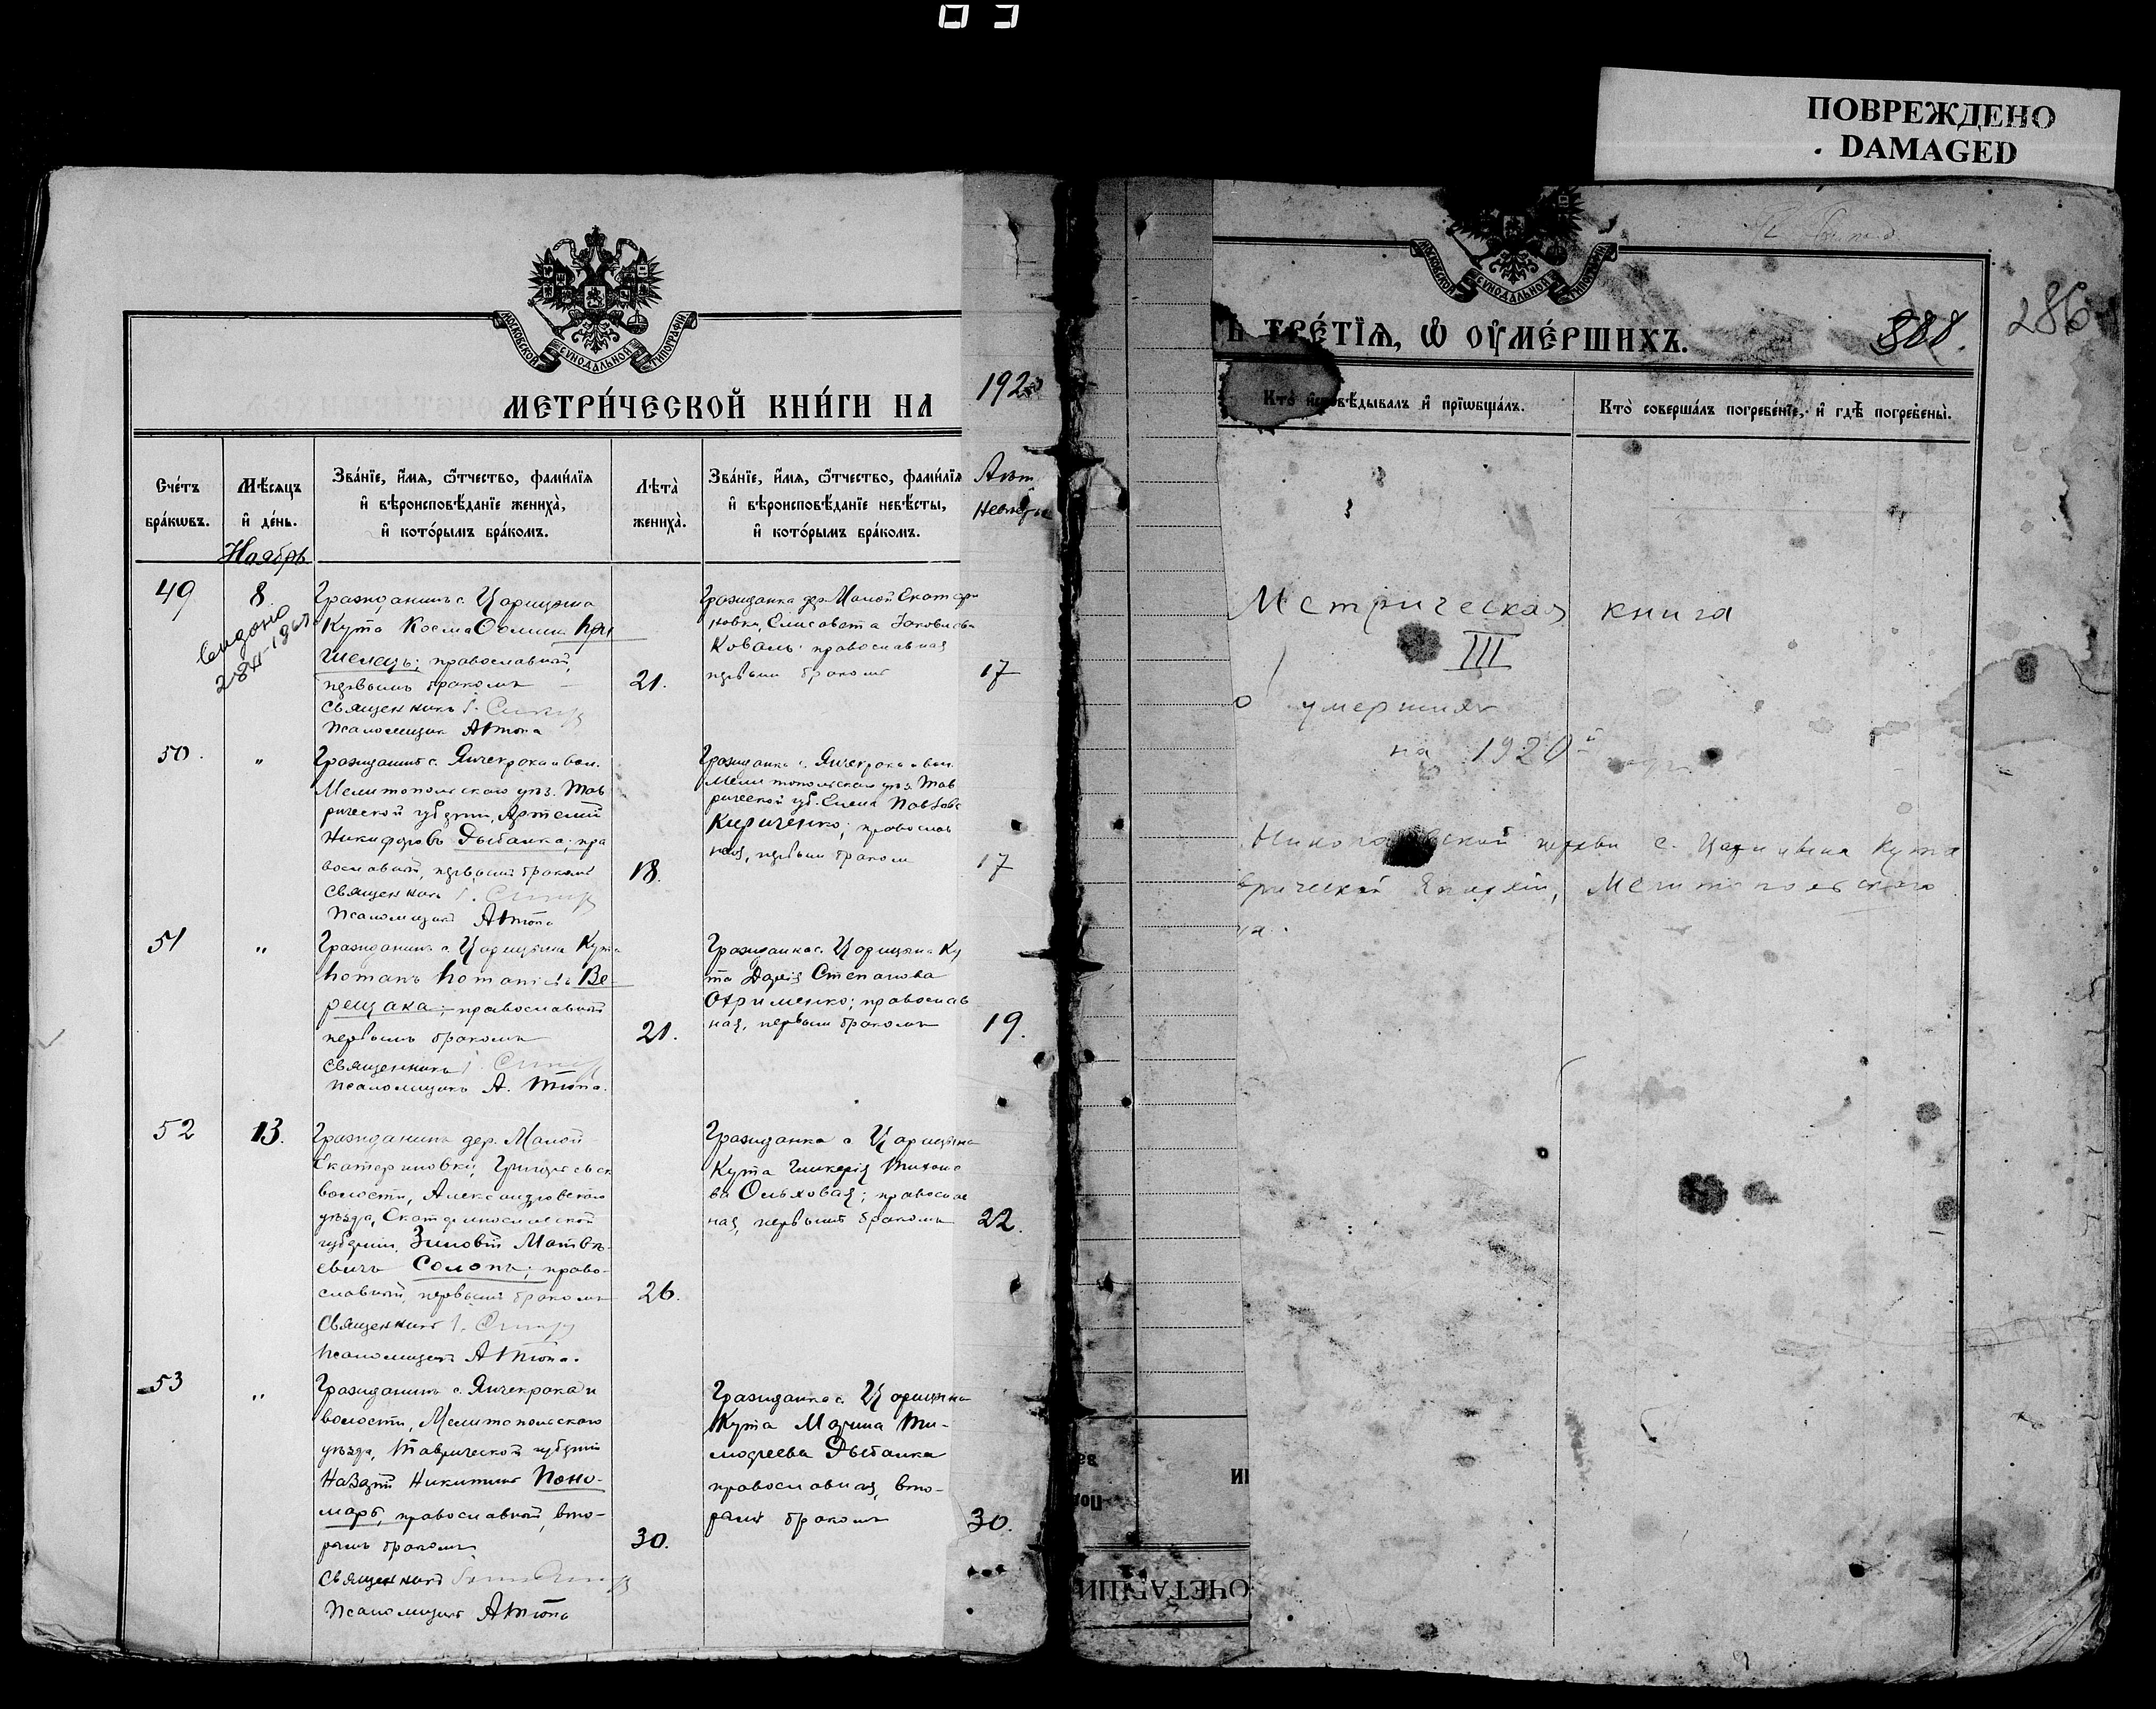 ПОВРЕЖДЕНО
DAMAGED
МОСКОВСКОЙ СѴНОДАЛЬНОЙ ТИПОГРАФІИ
МЕТРИ́ЧЕСКОЙ КНИ́ГИ НА
1920
Сче́тъ
бра́кѡвъ.
Мѣ́сѧцъ
и҆ де́нь.
Ноябрь
Зва́нїе, и҆́мѧ, ѻ҆́тчество, фами́лїѧ
и҆ вѣроисповѣ́данїе жениха̀,
и҆ кото́рымъ бра́комъ.
Лѣта̀
жениха̀.
Зва́нїе, и҆́мѧ, ѻ҆́тчество, фами́лїѧ
и҆ вѣроисповѣ́данїе невѣ́сты,
и҆ кото́рымъ бра́комъ.
49
8
Гражданинъ с. Царицына
Кута Косма
православный,
первымъ бракомъ
Священникъ
Псаломщикъ А Тюпа
21.
Гражданка дер. Малой Екатери
новки, Елисавета Іаковлева
Коваль; православная
первым браком
17
50.
"
Гражданинъ с. Янчекрака и вол.
Мелитопольскаго уѣз. Тав
рической губерніи, Артемій
Никифоровъ Рыбалка; пра
вославный, первымъ бракомъ
Священникъ
Псаломщикъ А Тюпа
18.
Гражданка с. Янчекрака и вол.
Мелитопольскаго уѣз. Тав
рической губ. Елена Павлова
Кириченко; православ
ная, первым браком
17
51
"
Гражданинъ с. Царицына Кута
Потапъ Потапіевъ Ве
рещака; православный
первымъ бракомъ
Священникъ
Псаломщикъ А. Тюпа.
21.
Гражданка с. Царицына Ку
та Дарія Степанова
Охрименко; православ
ная, первым бракомъ
19.
52
13.
Гражданинъ дер. Малой
Екатериновки,
волости, Александровскаго
уѣзда, Екатеринославской
губерніи, Зиновій Матвѣ
евичъ Солопъ; право-
славный, первымъ бракомъ
Священникъ
Псаломщикъ А Тюпа.
26.
Гражданка с. Царицына
Кута Гликерія Тихоно
ва Ольховая; православ
ная, первымъ бракомъ
22.
53
"
Гражданинъ с. Янчекрака и
волости, Мелитопольскаго
уѣзда, Таврической губерніи
Назарій Никитинъ Поно-
марь, православный, вто-
рымъ бракомъ
Священникъ
Псаломщикъ А Тюпа
30.
Гражданка с. Царицына
Кута Марина Ти-
мофеева Рыбалка
православная, вто-
рымъ бракомъ
30.
МОСКОВСКОЙ СѴНОДАЛЬНОЙ ТИПОГРАФІИ
ТРЕ́ТЇѦ, Ѡ҆ ОУ҆МЕ́РШИХЪ.
388.
286
Кто̀ и҆сповѣ́дывалъ и҆ прїѡбща́лъ.
Кто̀ соверша́лъ погребе́нїе, и҆ гдѣ̀ погребены̀.
Метрическая книга
III
о умерших
на 1920 й год
Николаевской церкви с. Царицына Кута
врической Епархіи, Мелитопольского